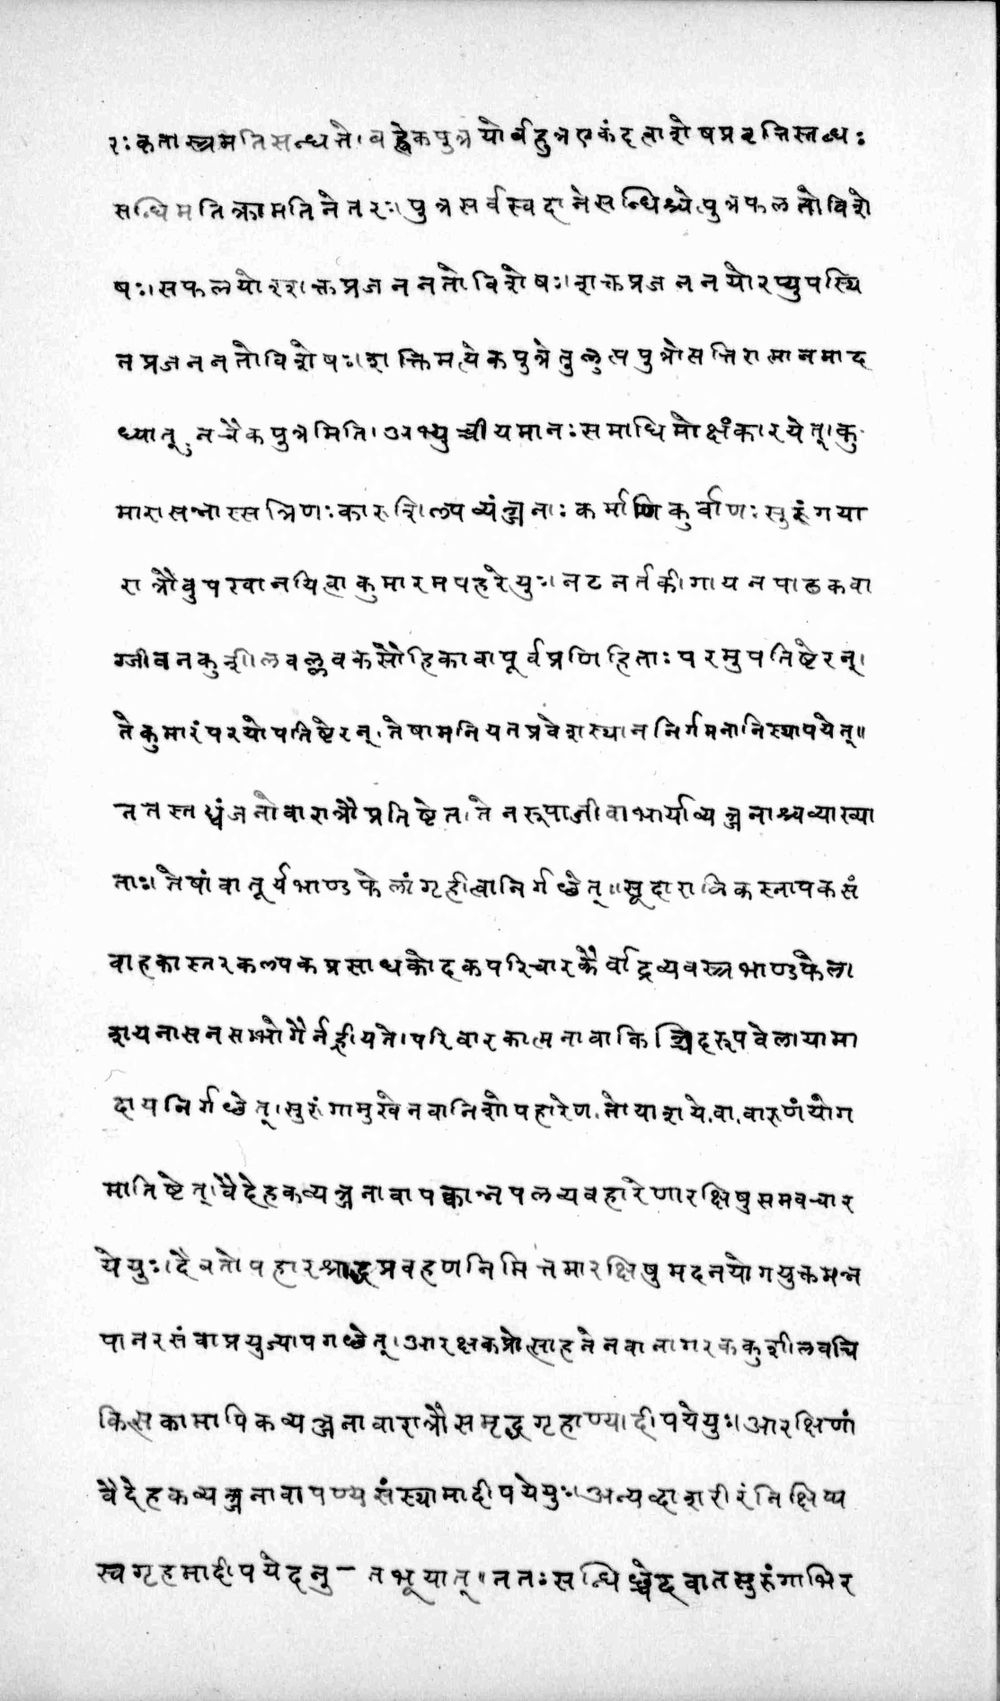 रः कृतास्त्रमतिसन्धत्ते। बह्वेकपुत्रयोर्बहुत्र एकं दत्वा शेषप्रवृत्तिस्तब्धः
सन्धिमतिक्रामति नेतरः। पुत्रसर्वस्वदाने सन्धिश्चेत्पुत्रफलतो विशे
षः। सफलयोश्शक्तप्रजननतो विशेषः। शक्तप्रजननयोरप्युपस्थि
तप्रजननतो विशेषः। शक्तिमत्येकपुत्रे तु लुप्तपुत्रोत्पत्तिरात्मानमाद
ध्यात्, न चैकपुत्रमिति। अभ्युच्चीयमानः समाधिमोक्षं कारयेत्। कु
मारासन्नास्सत्रिणः कारुशिल्पव्यंञ्जनाः कर्माणि कुर्वाणः सुरुंगया
रात्रौवुपखानयित्वा कुमारमपहरेयुः। नटनर्तकीगायनपाठकवा
ग्जीवनकुशीलवप्लवकसौहिका वा पूर्वप्रणिहिताः परमुपतिष्टेरन्।
ते कुमारं परयोपतिष्टेरन्। तेषामनियतप्रवेशस्थाननिर्गमनानि स्थापयेत्॥
ततस्तध्वंजनो वा रात्रौ प्रतिष्टेत। तेन रूपाजीवाभार्याव्यञ्जनाश्च व्याख्या
ताः। तेषां वा तूर्यभाण्डफेलां गृहीत्वा निर्गछेत्॥ सूदारालिकस्नापकसं
वाहकास्तरकल्पकप्रसाधकोदकपरिचारकैर्वा द्रव्यवस्त्रभाण्डफेला
शयनासनसम्भोगैर्नह्रीयते। परिचारकात्मना वा किञ्चिदरूपवेलायामा
दाय निर्गछेत्। सुरुंगामुखेन वा निशोपहारेण। तोयाशये, वा, वारुणं योग
मातिष्टेत्। वैदेहकव्यञ्जना वा पक्वान्नपलव्यवहारेणारक्षिषु समवचार
येयुः। दैवतोपहारश्राद्धप्रवहणनिमित्तमारक्षिषु मदनयोगयुक्तमन्न
पानरसं वा प्रयुज्यापगछेत्। आरक्षकप्रोत्साहनेन वा नागरककुशीलवचि
कित्सकामापिकव्यञ्जना वा रात्रौ समृद्धगृहाण्यादीपयेयुः। आरक्षिणां
वैदेहकव्यञ्जना वा पण्यसंस्थामादीपयेयुः। अन्यद्वा शरीरं निक्षिप्य
स्वगृहमादीपयेदनु - तभूयात्। ततः सन्धिछेदवातसुरुंगाभिर